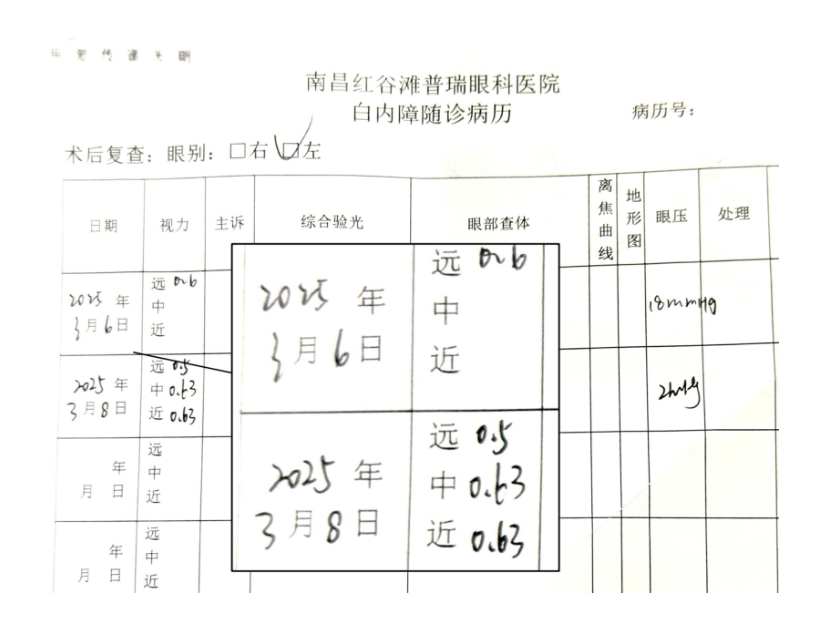 南昌红谷滩普瑞眼科医院
白内障随诊病历
病历号：
术后复查：眼别：□右 □左
日期 视力 主诉 综合验光 眼部查体 离焦曲线 地形图 眼压 处理
2025 年 3月6日 远 0.6 中 近 18mmHg
2025 年 3月8日 远 0.5 中 0.63 近 0.63
年 月 日 远 中 近
年 月 日 远 中 近
2025 年 3月6日 远 0.6 中 近
2025 年 3月8日 远 0.5 中 0.63 近 0.63